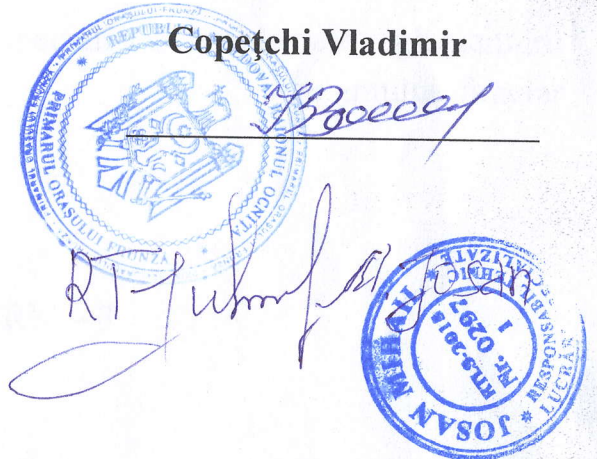 Copețchi Vladimir
REPUBLICA MOLDOVA RAIONUL OCNIȚA
PRIMARUL ORAȘULUI FRUNZĂ
RT M. Josan
JOSAN MIHAIL
RESPONSABIL TEHNIC
LUCRĂRI SPECIALIZATE
RTLS-2018
Nr. 0297
1